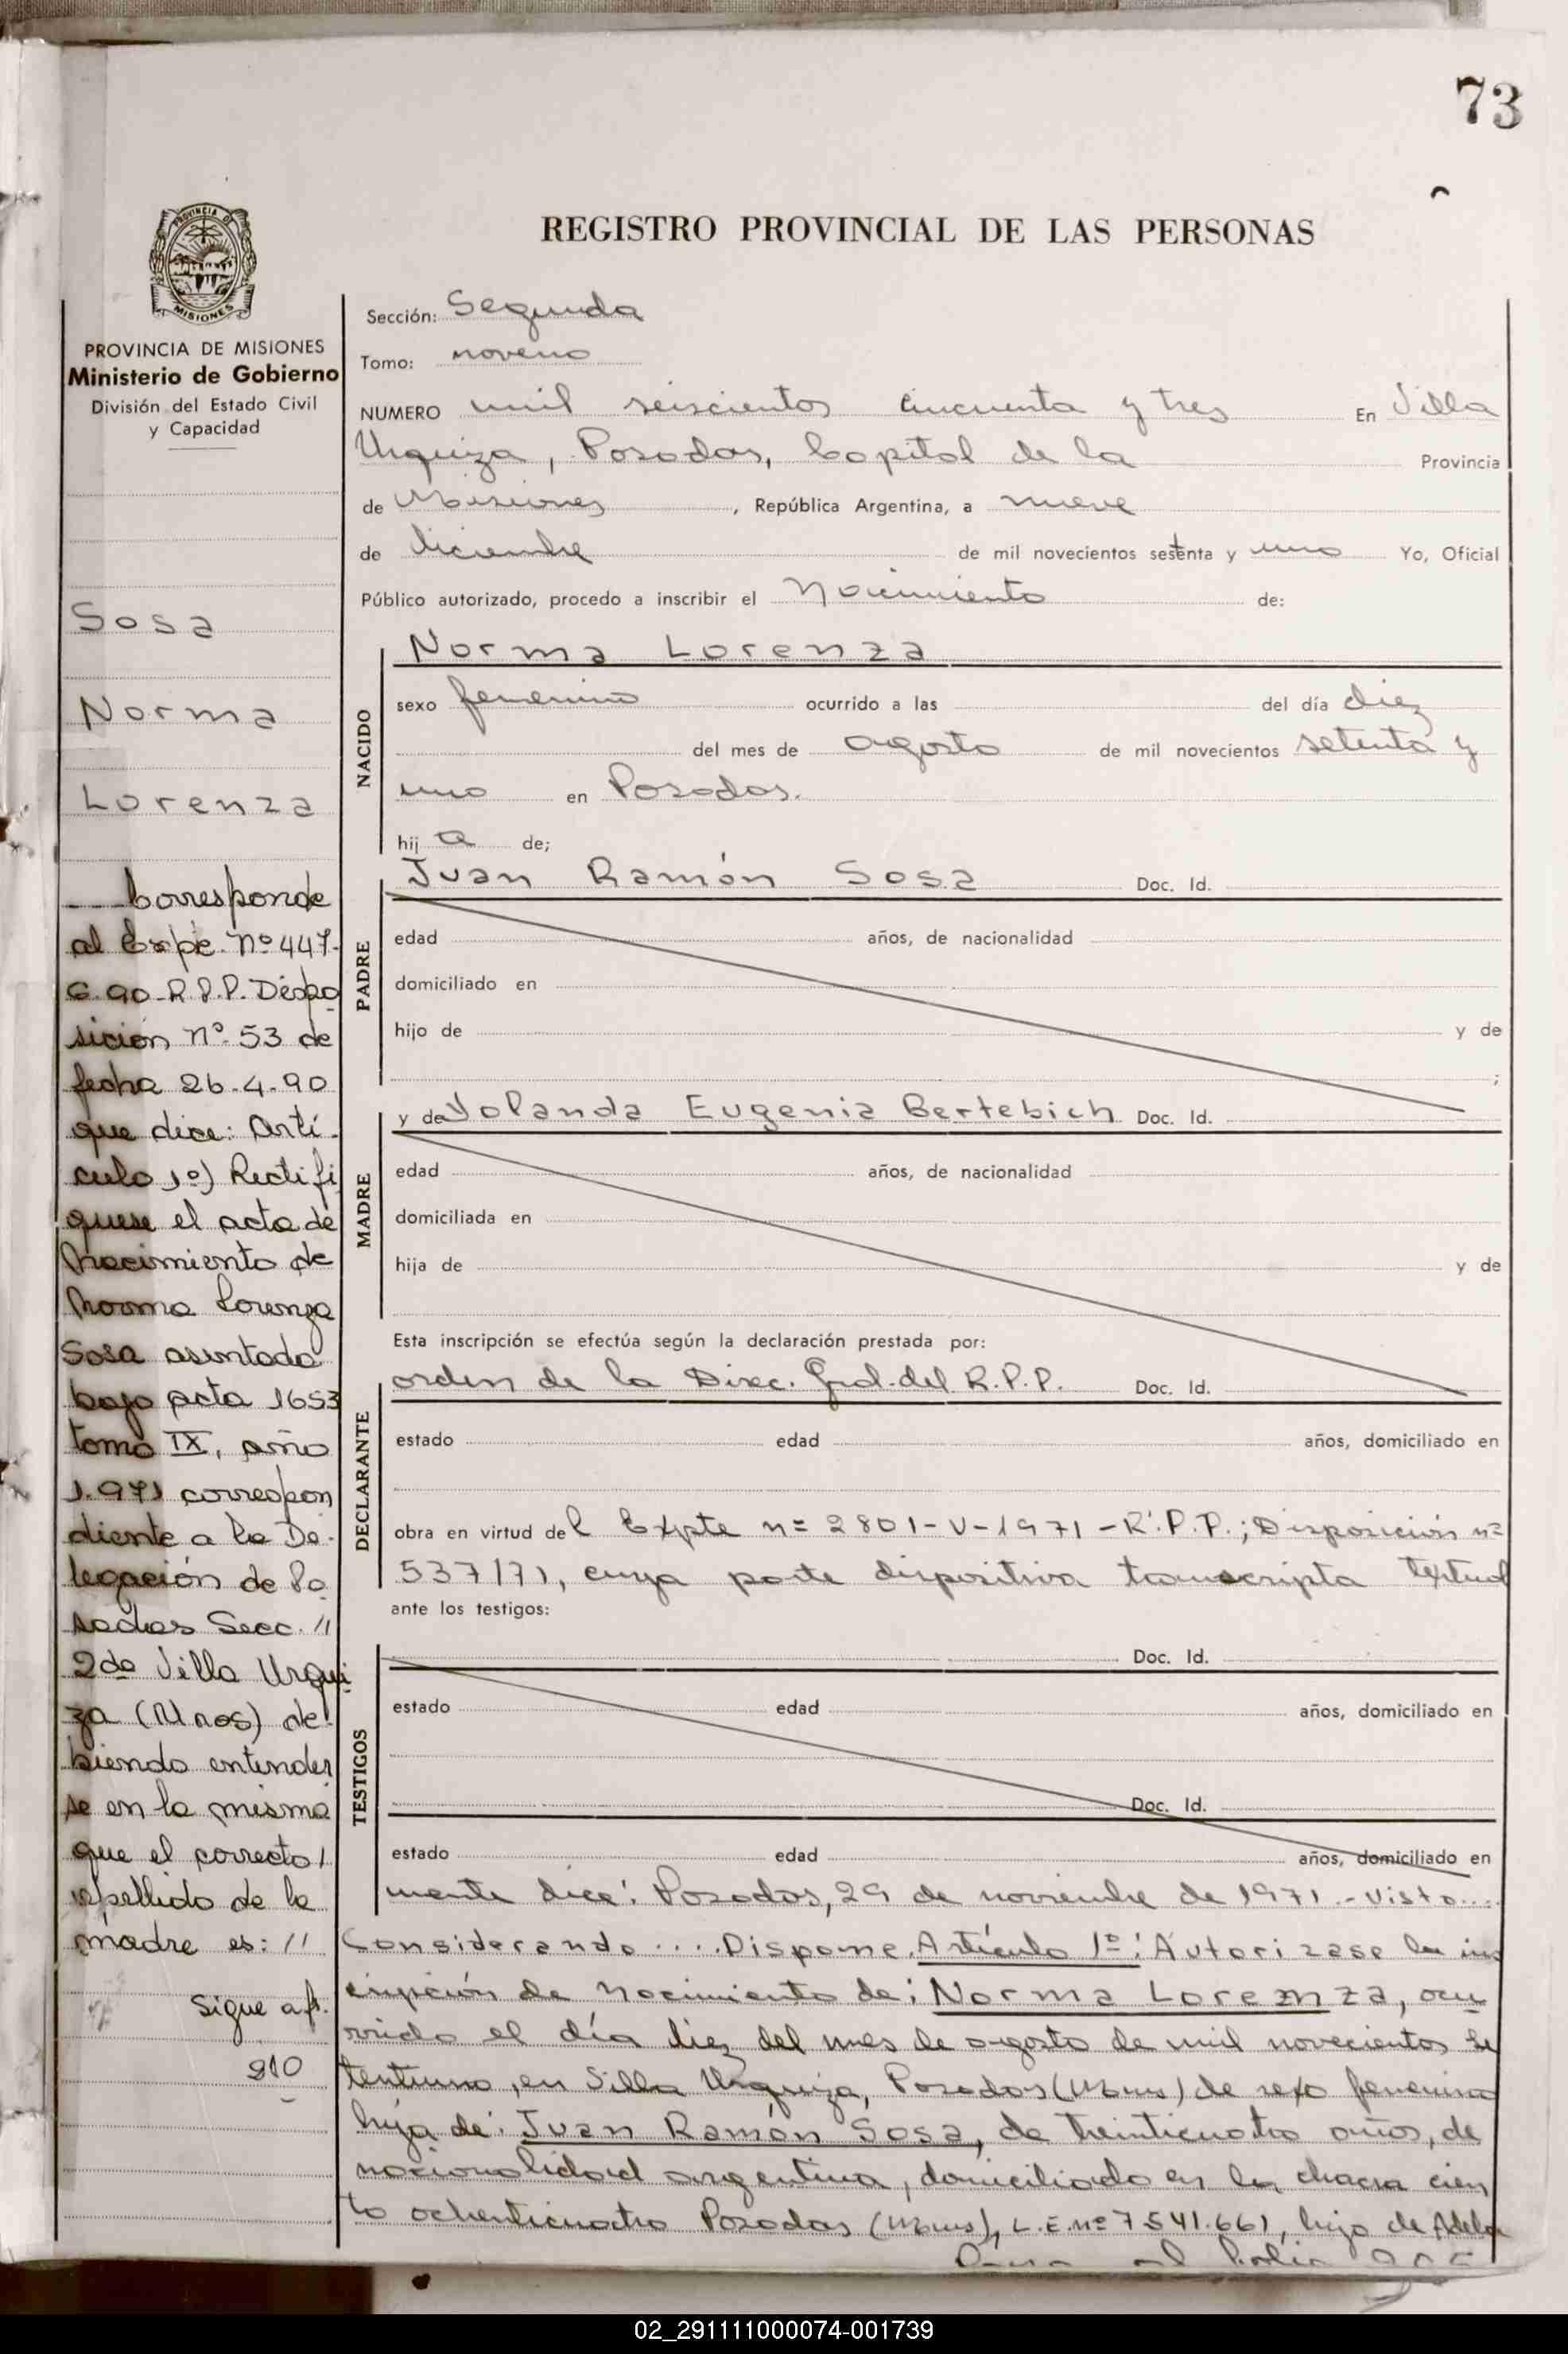 73
PROVINCIA DE
MISIONES
PROVINCIA DE MISIONES
Ministerio de Gobierno
División del Estado Civil
y Capacidad
Sosa
Norma
Lorenza
Corresponde
al Expe. Nº 447-
S.90-R.P.P. Dispo
sición Nº 53 de
fecha 26.4.90
que dice: Artí-
culo 1º) Rectifí
quese el acta de
Nacimiento de
Norma Lorenza
Sosa asentada
bajo acta 1653
tomo IX, año
1.971 correspon
diente a la De-
legación de Po
sadas Secc. //
2da Villa Urqui
za (Mnes) de-
biendo entender
se en la misma
que el correcto /
apellido de la
madre es: //
Sigue a fs.
210
REGISTRO PROVINCIAL DE LAS PERSONAS
Sección: Segunda
Tomo: noveno
NUMERO mil seiscientos cincuenta y tres En Villa
Urquiza, Posadas, Capital de la Provincia
de Misiones, República Argentina, a nueve
de diciembre de mil novecientos setenta y uno Yo, Oficial
Público autorizado, procedo a inscribir el Nacimiento de:
Norma Lorenza
NACIDO
sexo femenino ocurrido a las del día diez
del mes de agosto de mil novecientos setenta y
uno en Posadas.
hij a de;
Juan Ramón Sosa Doc. Id.
PADRE
edad años, de nacionalidad
domiciliado en
hijo de y de
;
y de Yolanda Eugenia Bertebich Doc. Id.
MADRE
edad años, de nacionalidad
domiciliada en
hija de y de
Esta inscripción se efectúa según la declaración prestada por:
orden de la Direc. Gral. del R.P.P. Doc. Id.
DECLARANTE
estado edad años, domiciliado en
obra en virtud del Expte nº 2801-V-1971-R.P.P.; Disposición nº
537/71, cuya parte dispositiva transcripta textual
ante los testigos:
TESTIGOS
Doc. Id.
estado edad años, domiciliado en
Doc. Id.
estado edad años, domiciliado en
mente dice: Posadas, 29 de noviembre de 1971.- Visto....
Considerando.... Dispone. Artículo 1º: Autorizase la ins
cripción de nacimiento de: Norma Lorenza, ocu
rrido el día diez del mes de agosto de mil novecientos se
tentiuno, en Villa Urquiza, Posadas (Mnes) de sexo femenino
hija de: Juan Ramón Sosa, de treinticuatro años, de
nacionalidad argentina, domiciliado en la chacra cien
to ochenticuatro Posadas (Mnes), L.E. nº 7.541.661, hijo de Adela
02_291111000074-001739